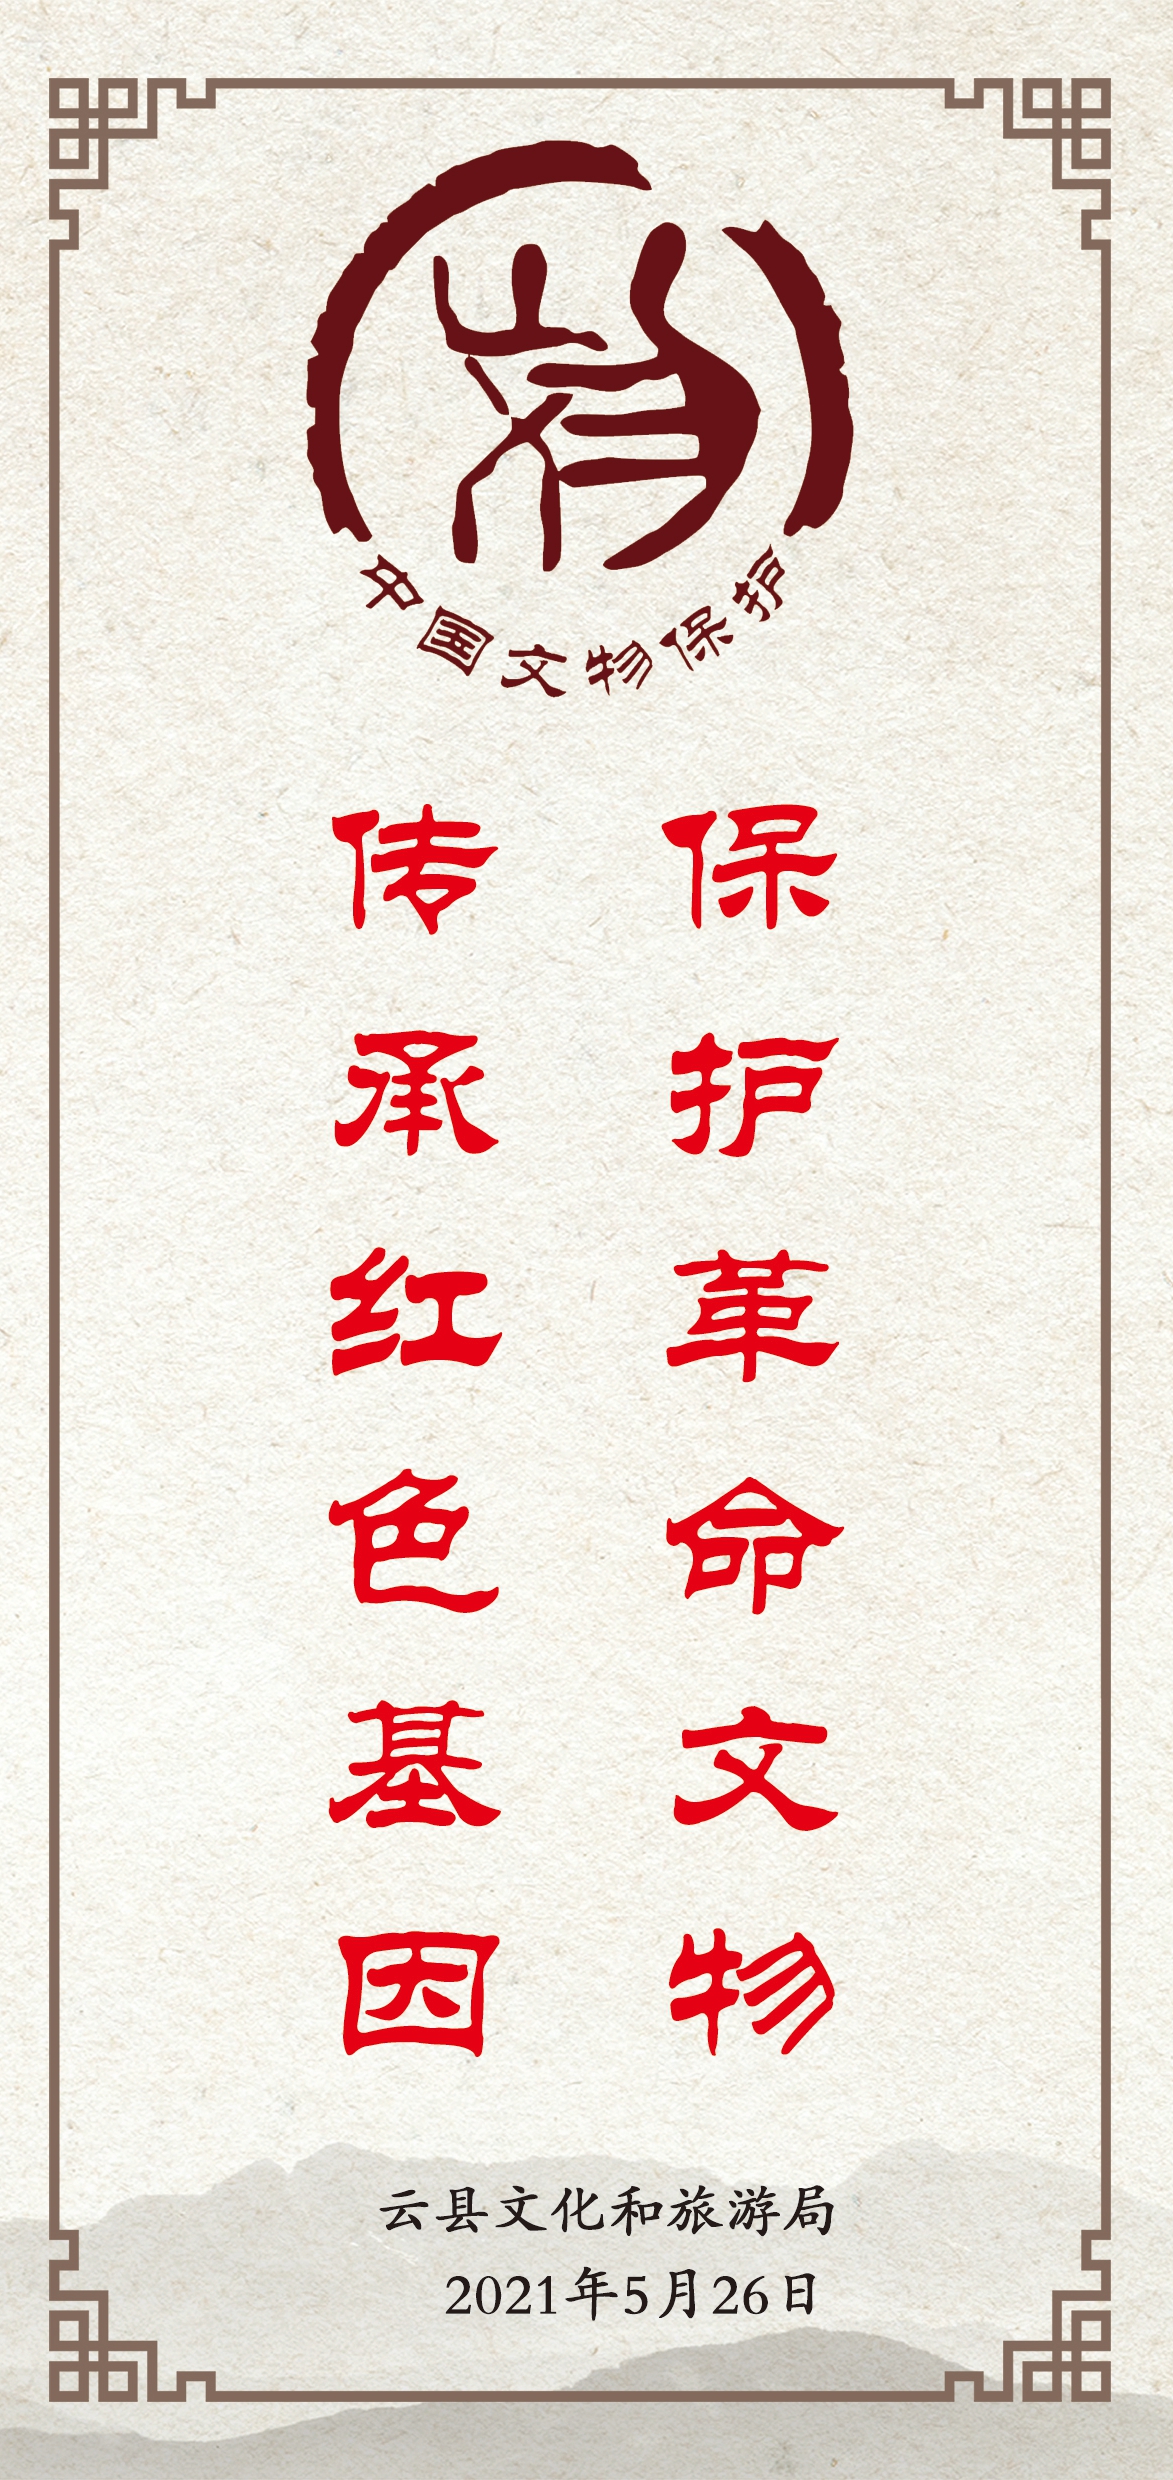 中国文物保护
保护革命文物
传承红色基因
云县文化和旅游局
2021年5月26日